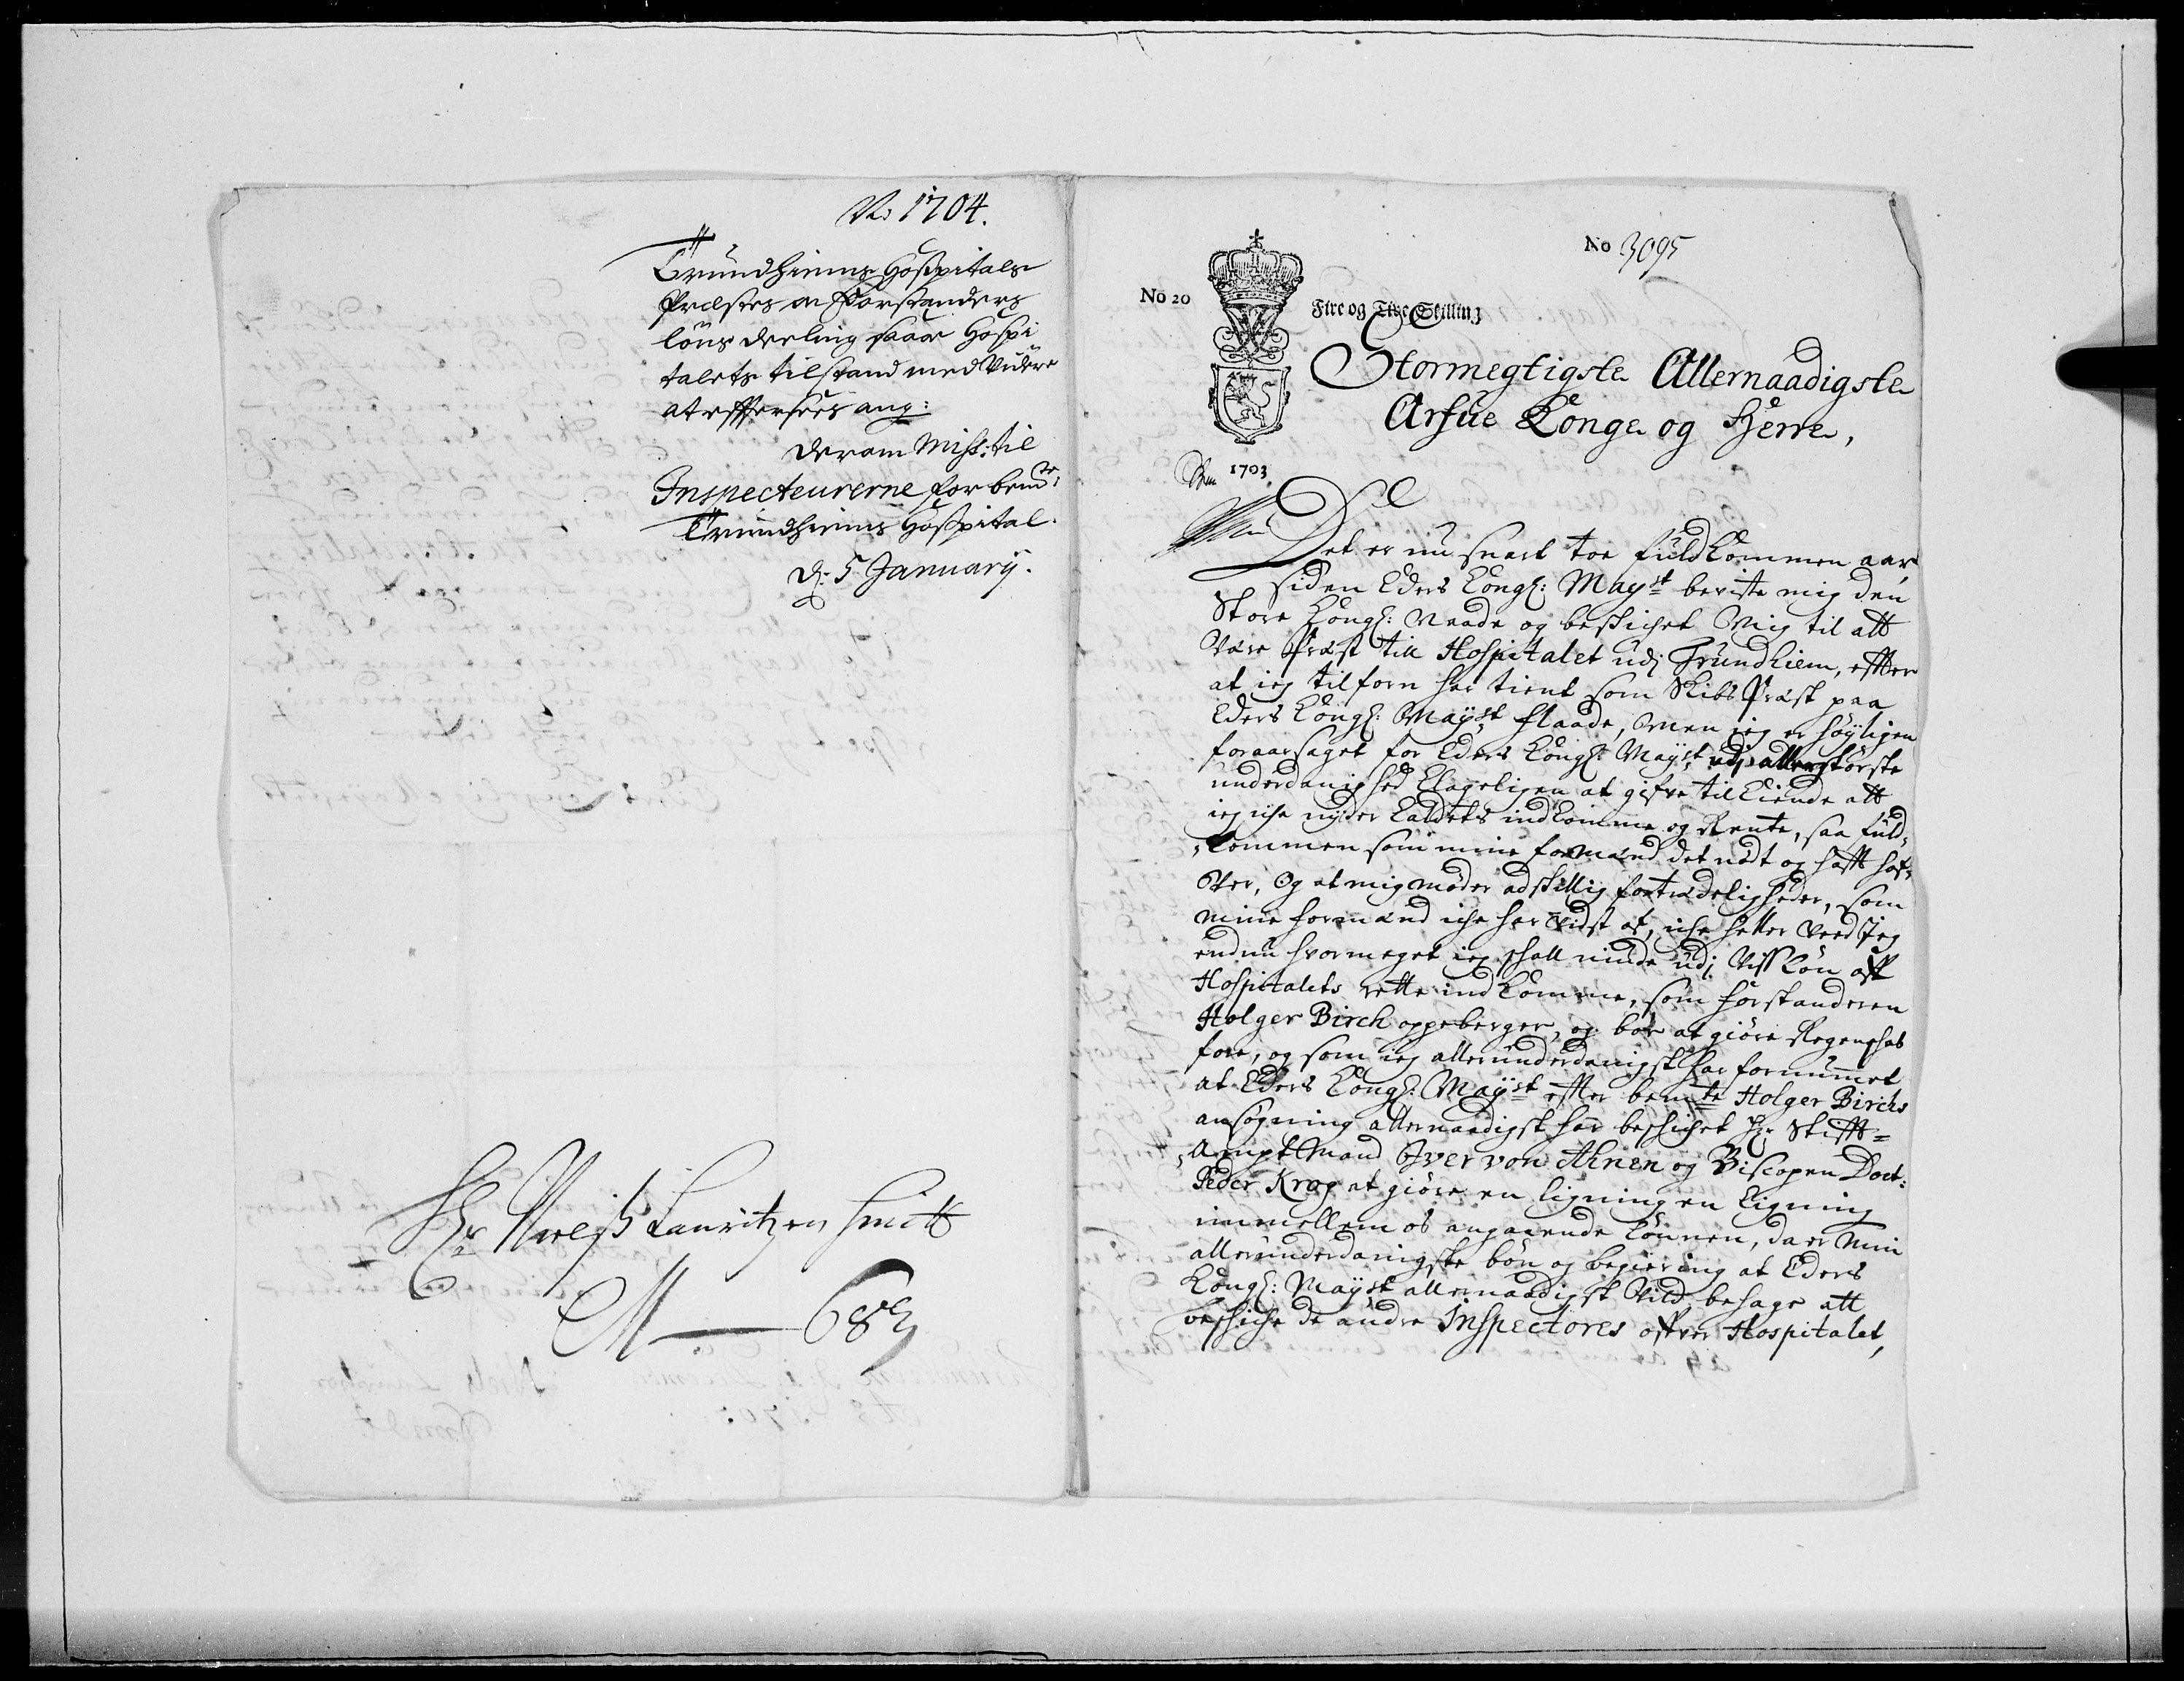 No 1704.
Trundhiems Hospitals
Præstes og Forstanders
löns deeling saa og Hospi
talets tilstand med videre
at efftersees ang:
derom Miss: til
Inspecteurerne for bemte
Trundhiems Hospital.
d: 5 Januarÿ.
Hr Niels Lauritzen Smitt
M — 689
No 3095
No 20
Fire og Tive Skilling
Stormegtigste Allernaadigste
Arfue Konge og Herre,
1703
Det er nu snart toe fuldkommen aar
siden Eders Kongl: Mayst beviste mig den
Store Kongl: Naade og beskichet mig til att
være Præst till Hospitalet udj Trundhiem, effter
at ieg tilforn har tient som Skibs Præst paa
Eders Kongl: Mayst Flaade, Men ieg er höyligen
foraarsaget for Eders Kongl: Mayst udj allerstörste
underdanighed Klageligen at gifve tilkiende att
ieg iche nyder Kaldets indkomme og Rente, saa fuld-
kommen som mine formænd det nödt og hafft haf-
ver, Og at mig möder adskillig fortrædeligheder, som
mine formænd iche har vidst af, iche heller veed Jeg
endnu hvormeget ieg skall niude udj viss Lön aff
Hospitalets rette indkomme, som forstanderen
Holger Birch oppeberger, og bör at giöre Regenskab
fore, og som ieg allerunderdanigst har fornummet
at Eders Kongl: Mayst effter bemte Holger Birchs
ansögning allernaadigst har beskichet Hr: Stifft-
Amptmand Iver von Ahnen og Biscopen Doct:
Peder Krog at giöre en ligning en Ligning
immellem os angaaende Lönnen, da er min
allerunderdanigste bön og begiering at Eders
Kongl: Mayst allernaadigst vild behage att
beskiche de andre Inspectores ofver Hospitalet,